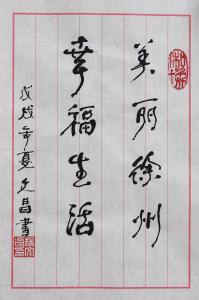 美丽徐州
幸福生活
戊戌年夏文昌书